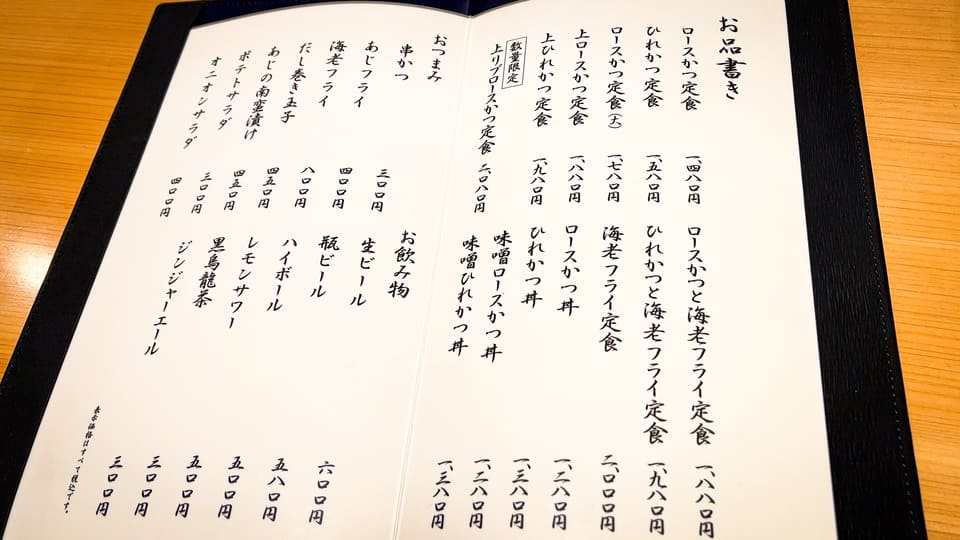 お品書き
ロースかつ定食 一、四八〇円
ひれかつ定食 一、五八〇円
ロースかつ定食(大) 一、七八〇円
上ロースかつ定食 一、八八〇円
上ひれかつ定食 一、九八〇円
数量限定
上リブロースかつ定食 二、〇八〇円
ロースかつと海老フライ定食 一、八八〇円
ひれかつと海老フライ定食 一、九八〇円
海老フライ定食 二、〇〇〇円
ロースかつ丼 一、二八〇円
ひれかつ丼 一、三八〇円
味噌ロースかつ丼 一、二八〇円
味噌ひれかつ丼 一、三八〇円
おつまみ
串かつ 三〇〇円
あじフライ 四〇〇円
海老フライ 八〇〇円
だし巻き玉子 四五〇円
あじの南蛮漬け 四五〇円
ポテトサラダ 三〇〇円
オニオンサラダ 四〇〇円
お飲み物
生ビール 六〇〇円
瓶ビール 五八〇円
ハイボール 五〇〇円
レモンサワー 五〇〇円
黒烏龍茶 三〇〇円
ジンジャーエール 三〇〇円
表示価格はすべて税込です。